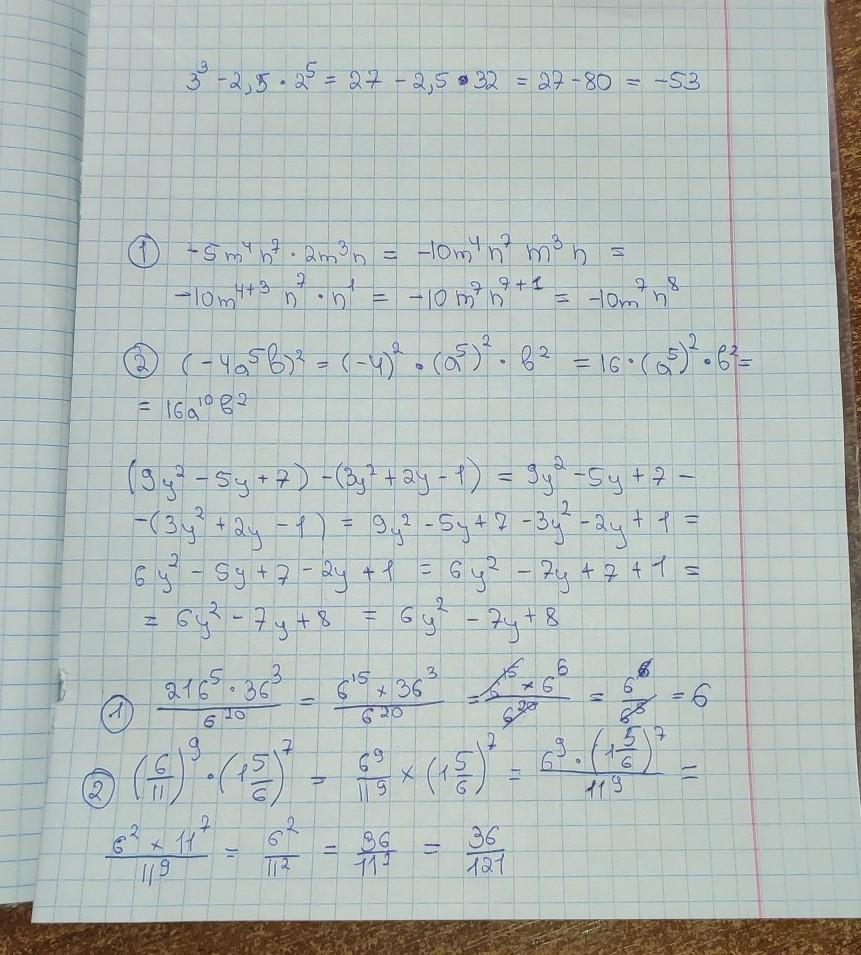 3³ - 2,5 · 2⁵ = 27 - 2,5 · 32 = 27 - 80 = -53
① -5m⁴n⁷ · 2m³n = -10m⁴n⁷ m³n =
-10m⁴⁺³ n⁷ · n¹ = -10m⁷n⁷⁺¹ = -10m⁷n⁸
② (-4a⁵b)² = (-4)² · (a⁵)² · b² = 16 · (a⁵)² · b² =
= 16a¹⁰b²
(9y² - 5y + 7) - (3y² + 2y - 1) = 9y² - 5y + 7 -
-(3y² + 2y - 1) = 9y² - 5y + 7 - 3y² - 2y + 1 =
6y² - 5y + 7 - 2y + 1 = 6y² - 7y + 7 + 1 =
= 6y² - 7y + 8 = 6y² - 7y + 8
① (216⁵ · 36³)/6²⁰ = (6¹⁵ × 36³)/6²⁰ = (6¹⁵ × 6⁶)/6²⁰ = 6⁶/6⁵ = 6
② (6/11)⁹ · (1 5/6)⁷ = 6⁹/11⁹ × (1 5/6)⁷ = (6⁹ · (1 5/6)⁷)/11⁹ =
(6² × 11⁷)/11⁹ = 6²/11² = 36/11² = 36/121